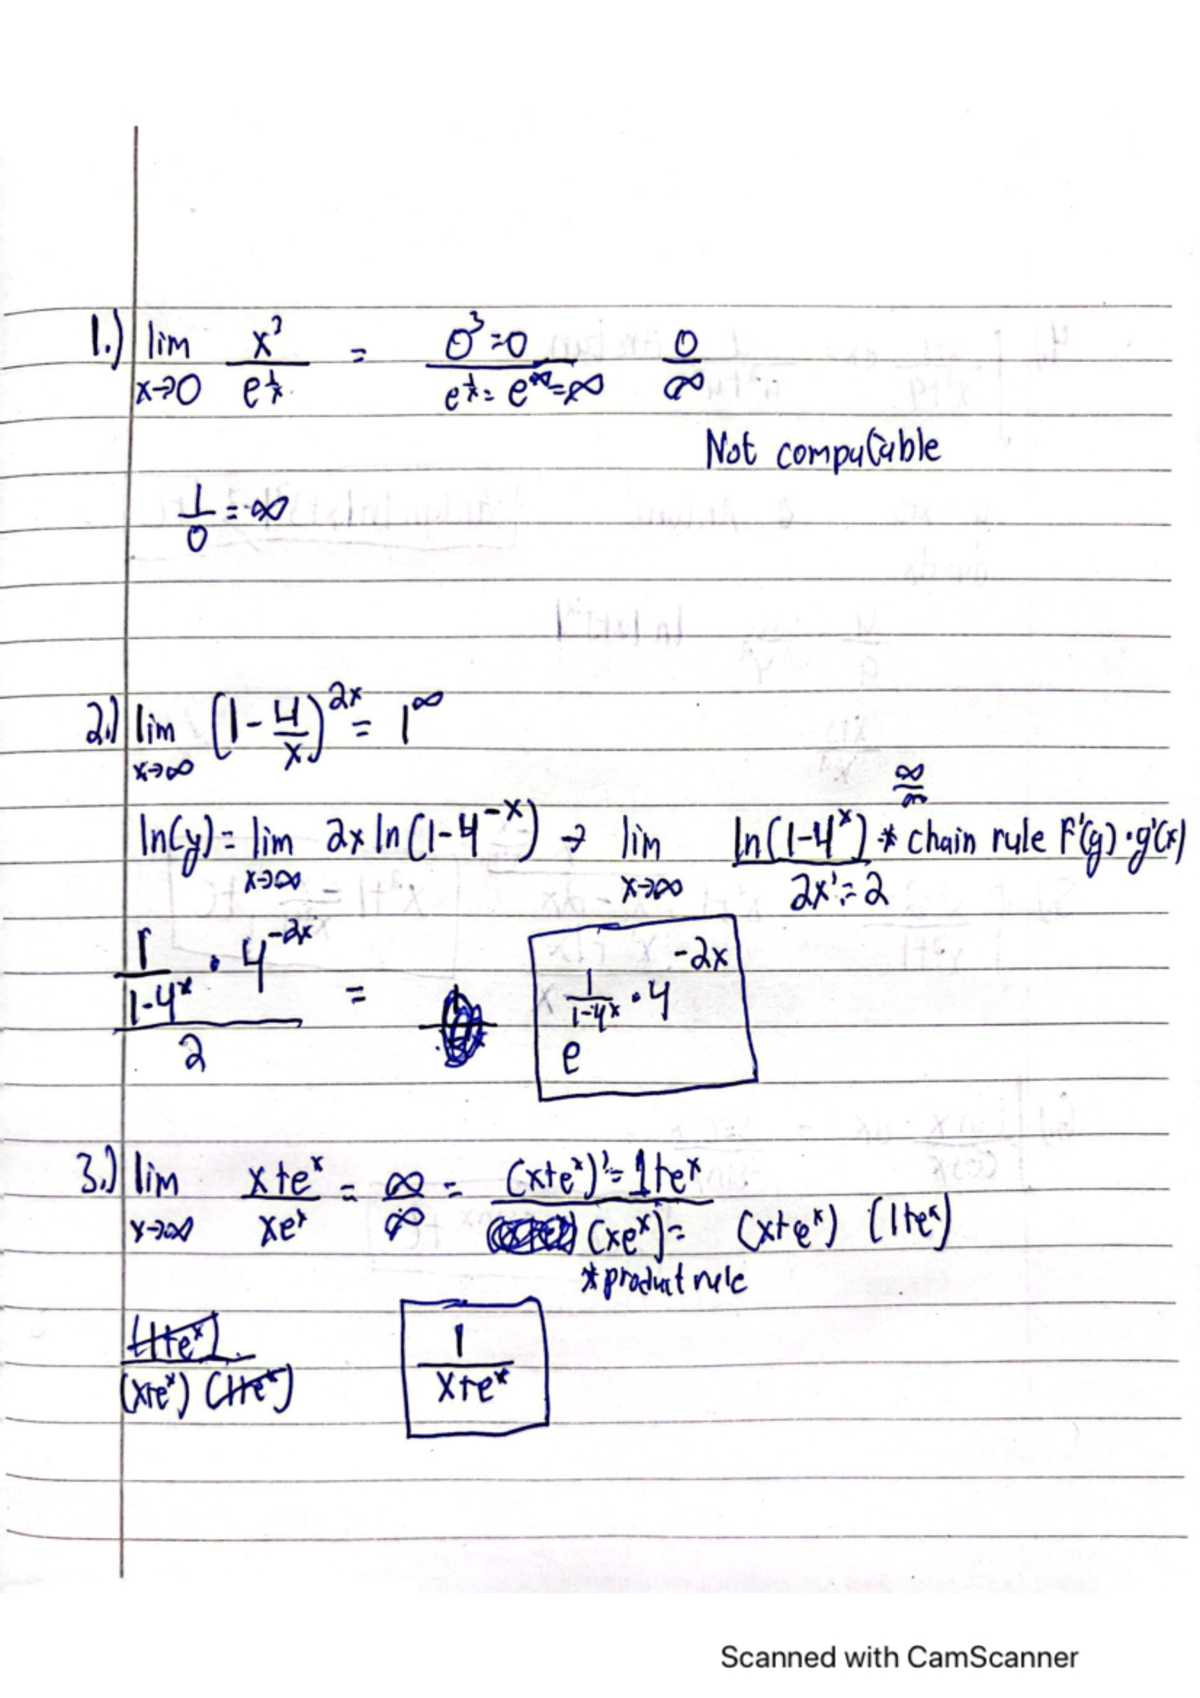 1.) lim x→0 x³/e^(1/x) = 0³=0 / e^(1/x)=e^∞=∞ 0/∞
Not computable
1/0 = ∞
2.) lim x→∞ (1-4/x)^(2x) = 1^∞
∞/∞
ln(y) = lim x→∞ 2x ln(1-4^(-x)) → lim x→∞ ln(1-4^x) / 2x'=2 * chain rule F'(g)·g'(x)
(1/(1-4^x) · 4^(-2x)) / 2 = e^(1/(1-4^x) · 4^(-2x))
3.) lim x→∞ (x+e^x)/(xe^x) = ∞/∞ = (x+e^x)'=1+e^x / (xe^x)'= (x+e^x) (1+e^x)
*product rule
(1+e^x) / (x+e^x) (1+e^x) 1/(x+e^x)
Scanned with CamScanner